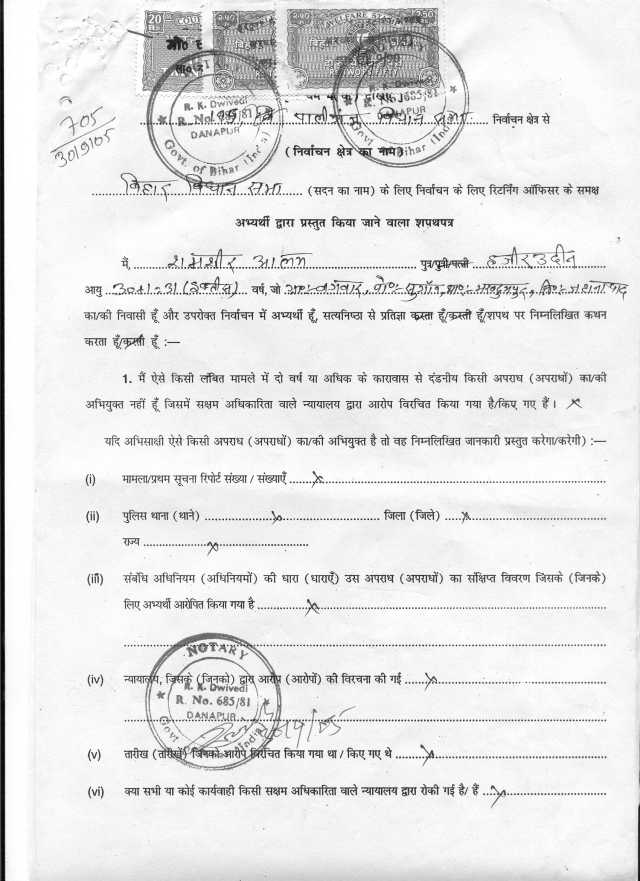 20 COU
2.50 WELFARE STA 2.50
NOTARY
R. K. Dwivedi
R. No. 685/81
DANAPUR
Govt. of Bihar (India)
NOTARY
R. K. Dwivedi
R. No. 685/81
DANAPUR
Govt. of Bihar (India)
705
30/9/05
195 पालीगंज विधान सभा निर्वाचन क्षेत्र से
(निर्वाचन क्षेत्र का नाम)
बिहार विधान सभा (सदन का नाम) के लिए निर्वाचन के लिए रिटर्निंग ऑफिसर के समक्ष
अभ्यर्थी द्वारा प्रस्तुत किया जाने वाला शपथपत्र
मैं, शमशीर आलम पुत्र/पुत्री/पत्नी
आयु 31 (इकतीस) वर्ष, जो
का/की निवासी हूँ और उपरोक्त निर्वाचन में अभ्यर्थी हूँ, सत्यनिष्ठा से प्रतिज्ञा करता हूँ/करती हूँ/शपथ पर निम्नलिखित कथन
करता हूँ/करती हूँ :—
1. मैं ऐसे किसी लंबित मामले में दो वर्ष या अधिक के कारावास से दंडनीय किसी अपराध (अपराधों) का/की
अभियुक्त नहीं हूँ जिसमें सक्षम अधिकारिता वाले न्यायालय द्वारा आरोप विरचित किया गया है/किए गए हैं । ×
यदि अभिसाक्षी ऐसे किसी अपराध (अपराधों) का/की अभियुक्त है तो वह निम्नलिखित जानकारी प्रस्तुत करेगा/करेगी) :—
(i) मामला/प्रथम सूचना रिपोर्ट संख्या / संख्याएँ ×
(ii) पुलिस थाना (थाने) × जिला (जिले) ×
राज्य ×
(iii) संबंधि अधिनियम (अधिनियमों) की धारा (धाराएँ) उस अपराध (अपराधों) का संक्षिप्त विवरण जिसके (जिनके)
लिए अभ्यर्थी आरोपित किया गया है ×
(iv) न्यायालय, जिसके (जिनको) द्वारा आरोप (आरोपों) की विरचना की गई ×
NOTARY
R. K. Dwivedi
R. No. 685/81
DANAPUR
(v) तारीख (तारीखें) जिनको आरोप विरचित किया गया था / किए गए थे ×
(vi) क्या सभी या कोई कार्यवाही किसी सक्षम अधिकारिता वाले न्यायालय द्वारा रोकी गई है/ हैं ×